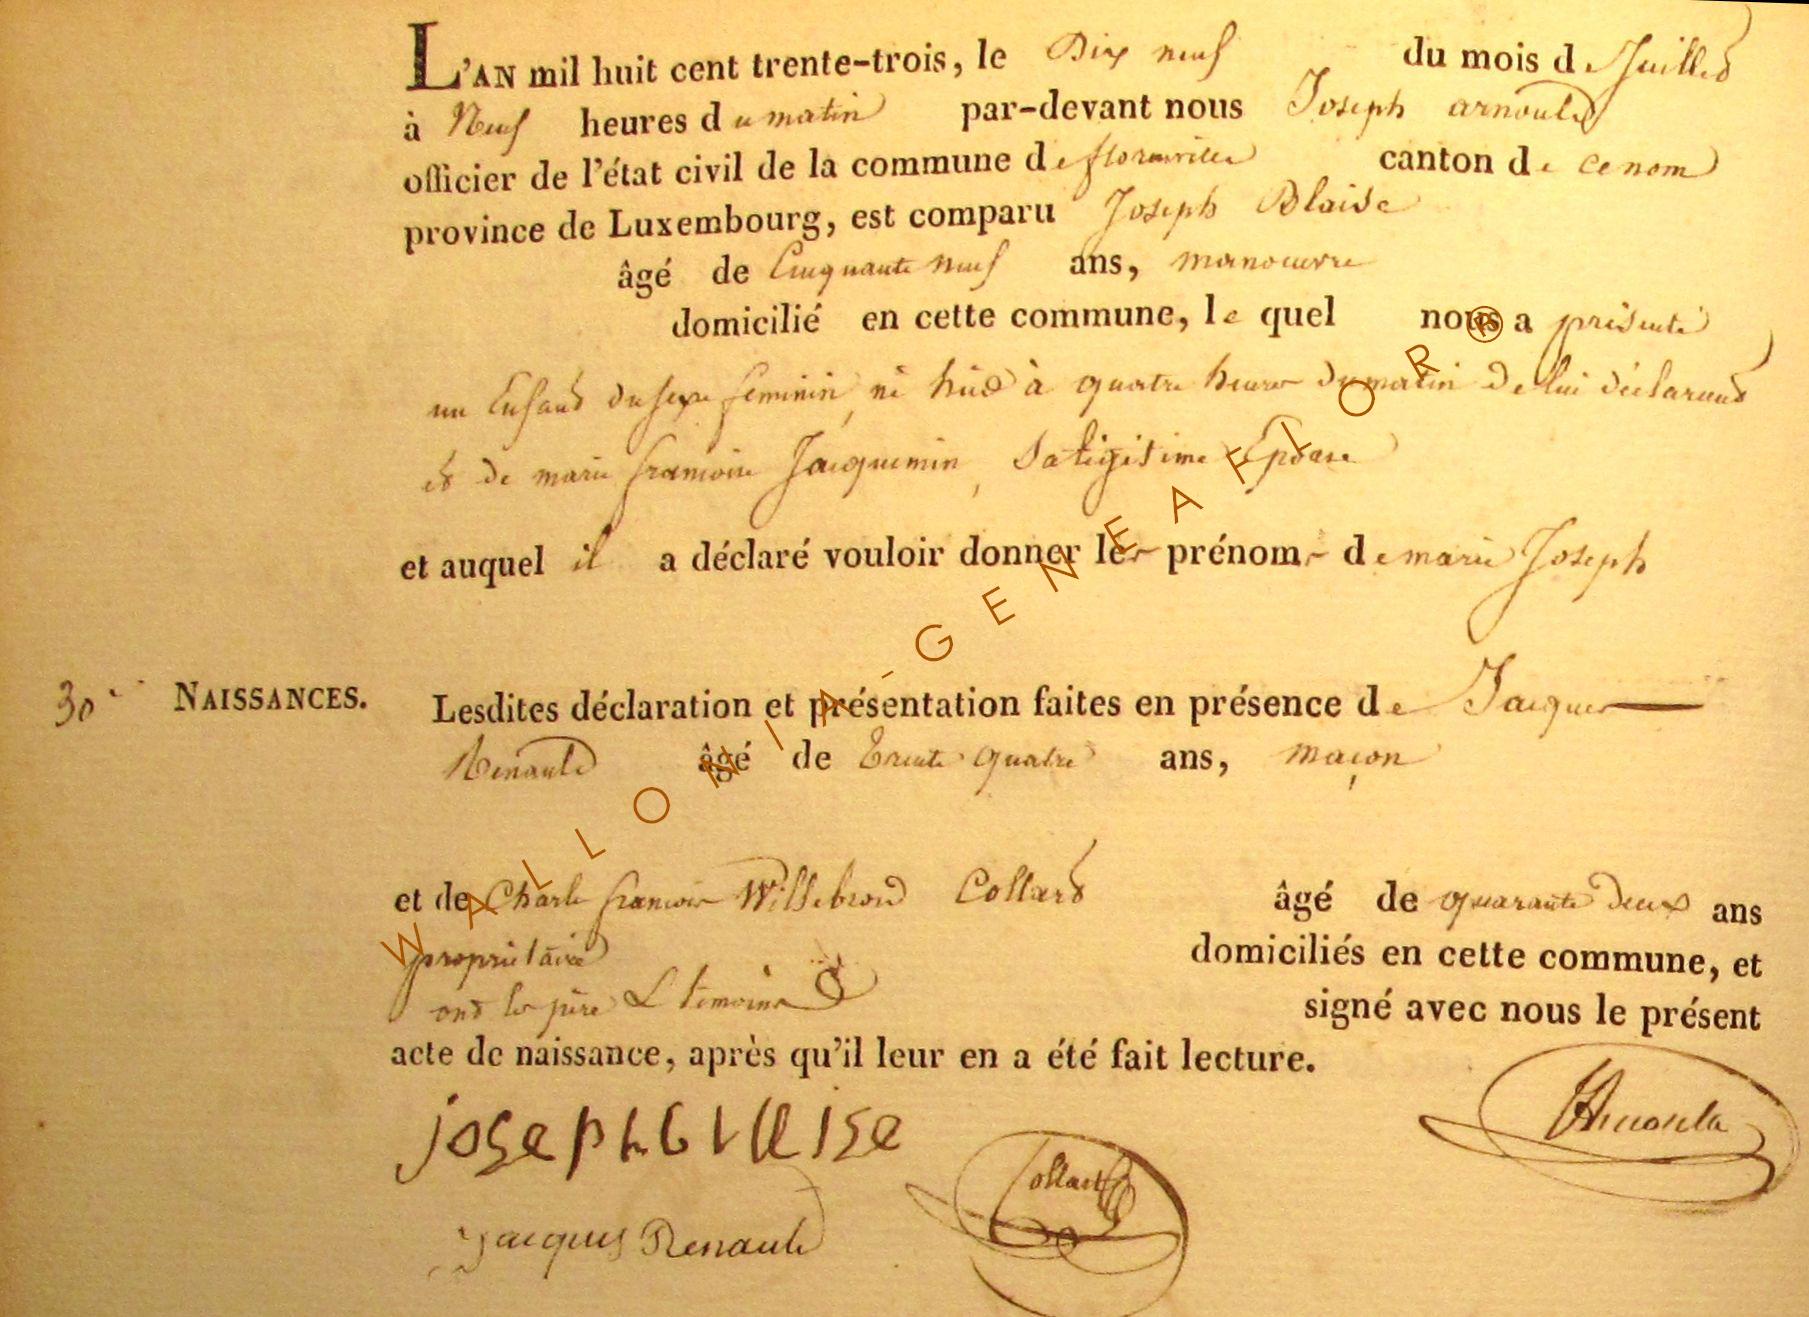 L'AN mil huit cent trente-trois, le Dix neuf du mois de Juillet
à Neuf heures du matin par-devant nous Joseph arnould
officier de l'état civil de la commune de florenville canton de ce nom
province de Luxembourg, est comparu Joseph Blaise
âgé de Cinquante neuf ans, manoeuvre
domicilié en cette commune, le quel nous a présenté
un Enfant du sexe feminin, né hier à quatre heures du matin de lui déclarant
et de marie françoise Jacquemin, sa légitime Epouse
et auquel il a déclaré vouloir donner les prénoms de marie Joseph
30e NAISSANCES. Lesdites déclaration et présentation faites en présence de Jacques
Renauld âgé de trente quatre ans, maçon
et de Charle françois Willebrord Collard âgé de quarante deux ans
propriétaire domiciliés en cette commune, et
ont les père & temoins signé avec nous le présent
acte de naissance, après qu'il leur en a été fait lecture.
joseph blaise
Collard
Jacques Renauld
WALLONIA-GENEAFLOR®